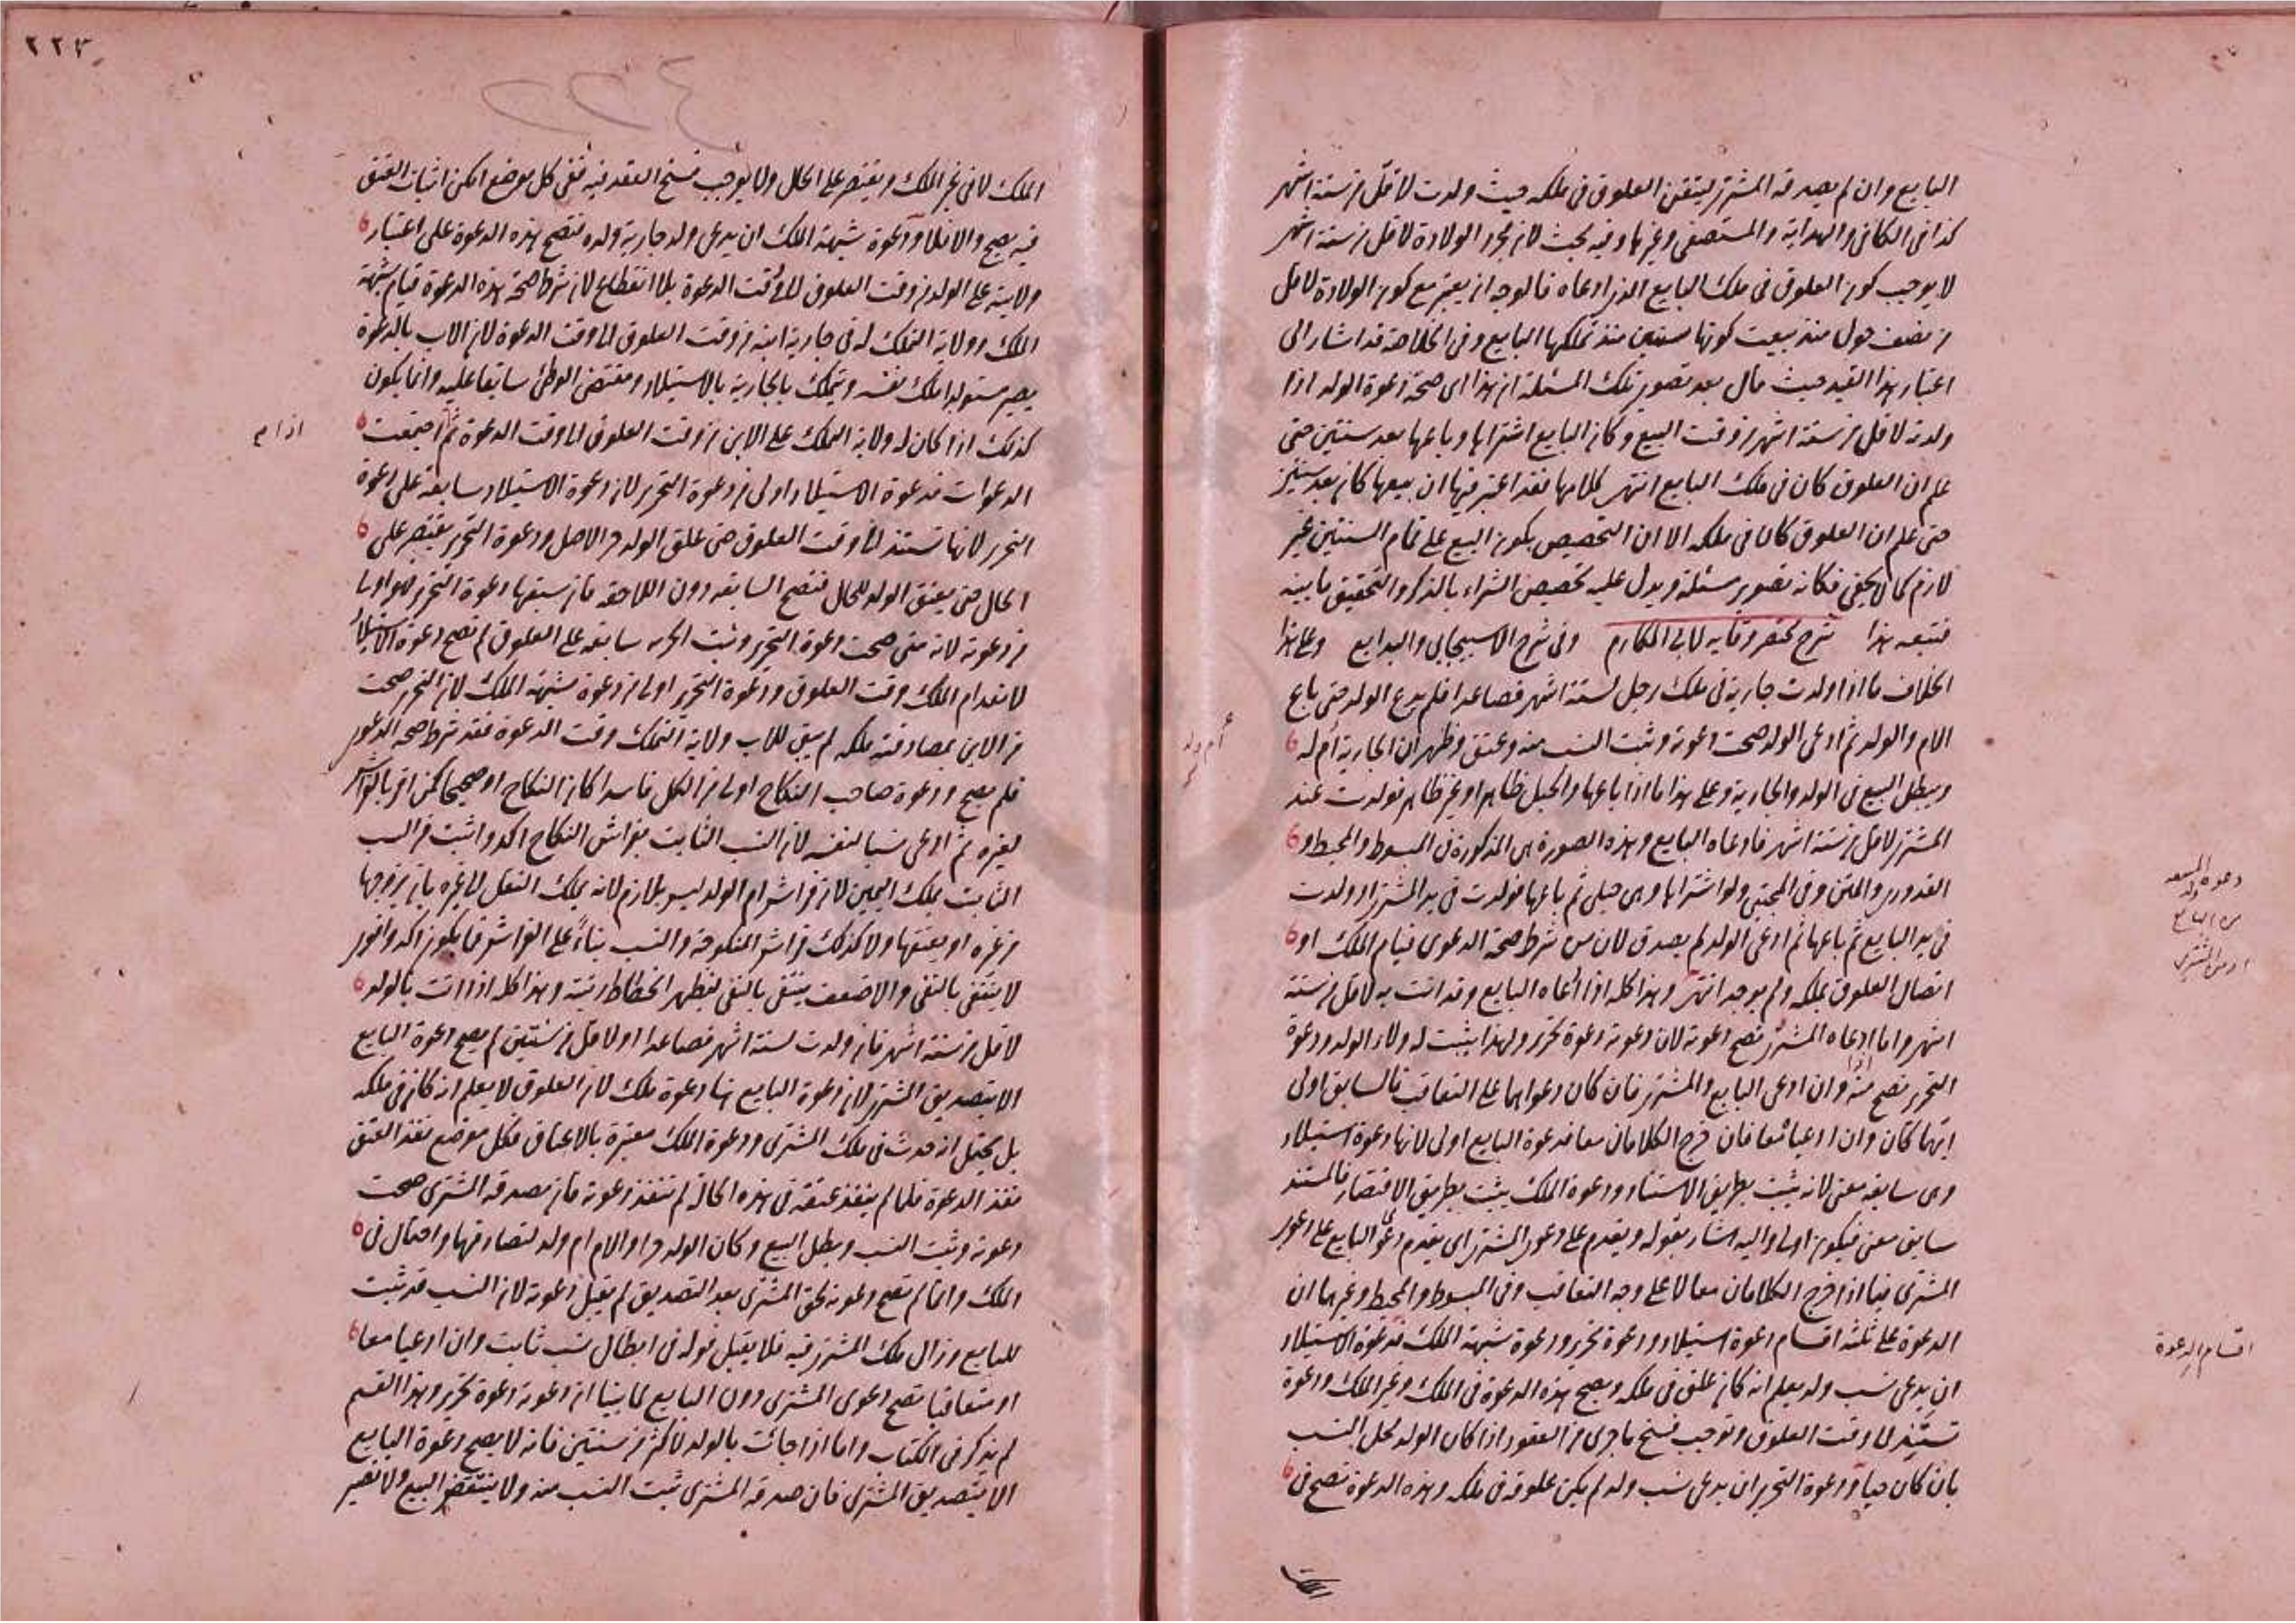 البايع وان لم يصدقه المشتري ليتقن العلوق فى ملكه حيث ولدت لاقل من ستة اشهر
كذا فى الكافى والهداية والمستصفى وغيرها وفيه بحث لان مجرد الولادة لاقل من ستة اشهر
لا يوجب كون العلوق فى ملك البايع الذى ادعاه فالوجه ان يعتبر مع كون الولادة لاقل
من نصف حول منذ بيعت كونها سنتين منذ تملكها البايع وفى الخلاصة قد اشار الى
اعتبار هذا القيد حيث قال بعد تصوير تلك المسئلة ان هذا اى صحة دعوة الولد اذا
ولدته لاقل من ستة اشهر من وقت البيع وكان البايع اشتراها وباعها بعد سنتين حتى
علم ان العلوق كان فى ملك البايع انتهى كلامها فقد اعتبر فيها ان بيعها كان بعد سنتين
حتى علم ان العلوق كان فى ملكه الا ان التخصيص بكون البيع على تمام السنتين غير
لازم كما لا يخفى فكانه تصوير مسئلة ويدل عليه تخصيص الشراء بالذكر والتحقيق ما بينه
فتتبعه هذا شرح مختصر وقايه لابى المكارم وفى شرح الاسبيجابى والبدايع وعلى هذا
الخلاف ما اذا ولدت جارية فى ملك رجل لستة اشهر فصاعدا فلم يدع الولد حتى باع
الام والولد ثم ادعى الولد صحت دعوته وثبت النسب منه وعتق وظهر ان الجارية ام له
ويبطل البيع فى الولد والجارية وعلى هذا ما اذا باعها والحبل ظاهر او غير ظاهر فولدت عند
المشترى لاقل من ستة اشهر فادعاه البايع وهذه الصورة هى المذكورة فى المبسوط والمحيط و
القدورى والمتن وفى المجتبى ولو اشتراها وهى حبلى ثم باعها فولدت فى يد المشترى او ولدت
فى يد البايع ثم باعها ثم ادعى الولد لم يصدق لان من شرط صحة الدعوى قيام الملك او
اتصال العلوق بملكه ولم يوجد انتهى وهذا كله اذا ادعاه البايع وقد اتت به لاقل من ستة
اشهر واما اذا ادعاه المشترى تصح دعوته لان دعوته دعوة تحرير ولهذا يثبت له ولاء الولد ودعوة
التحرير تصح منه وان ادعى البايع والمشترى فان كان دعواهما على التعاقب فالسابق اولى
ايهما كان وان ادعيا معا فان خرج الكلامان معا فدعوة البايع اولى لانها دعوة استيلاد
وهى سابقه معنى لانه يثبت بطريق الاستناد ودعوة الملك يثبت بطريق الاقتصار فالمستند
سابق معنى فيكون اولى واليه اشار بقوله ويقدم على دعوى المشترى اى يقدم دعوى البايع على دعوى
المشترى فيما اذا خرج الكلامان معا لا على وجه التعاقب وفى المبسوط والمحيط وغيرهما ان
الدعوة على ثلثه اقسام دعوة استيلاد ودعوة تحرير ودعوة شبهة الملك فدعوة الاستيلاد
ان يدعى نسب ولد يعلم انه كان علق فى ملكه ويصح هذه الدعوة فى الملك وغير الملك ودعوة
تستند الى وقت العلوق وتوجب فسخ ما جرى من العقود اذا كان الولد محل النسب
بان كان حيا ودعوة التحرير ان يدعى نسب ولد لم يكن علوقه فى ملكه وهذه الدعوة تصح فى
ام ولد
دعوة
ولد
من البايع
او من المشترى
اقسام الدعوة
٢٢٣
٢٢٤
الملك لا فى غير الملك ويقتصر على الحال ولا يوجب فسخ العقد فيه ففى كل موضع امكن اثبات العتق
فيه يصح والا فلا ودعوة شبهة الملك ان يدعى ولد جارية ولده فتصح هذه الدعوة على اعتبار
ولاية على الولد من وقت العلوق الى وقت الدعوة بلا انقطاع لان شرط صحة هذه الدعوة قيام شبهة
الملك وولاية التملك له فى جارية ابنه من وقت العلوق الى وقت الدعوة لان الاب بالدعوة
يصير مستولدا ملك نفسه ويتملك بالجارية بالاستيلاد ومقتضى الوطئ سابقا عليه وانما يكون
كذلك اذا كان له ولاية التملك على الابن من وقت العلوق الى وقت الدعوة ثم اجتمعت
الدعوات فدعوة الاستيلاد اولى من دعوة التحرير لان دعوة الاستيلاد سابقة على دعوة
التحرير لانها تستند الى وقت العلوق حتى علق الولد حر الاصل ودعوة التحرير يقتصر على
الحال حتى يعتق الولد للحال فتصح السابقه دون اللاحقه فان سبقها دعوة التحرير فهو اولى
من دعوته لانه متى صحت دعوة التحرير وثبت الحريه سابقه على العلوق لم تصح دعوة الاستيلاد
لانعدام الملك وقت العلوق ودعوة التحرير اولى من دعوة شبهة الملك لان التحرير صحت
من الابن بمصادفته ملكه لم يبق للاب ولاية التملك وقت الدعوة فقد شرط صحه الدعوى
فلم يصح ودعوة صاحب النكاح اولى من الكل فاسدا كان النكاح او صحيحا كمن اقر بالفراش
لغيره ثم ادعى نسبا لنفسه لان النسب الثابت بفراش النكاح اكد واثبت من النسب
الثابت بملك اليمين لان فراش ام الولد ليس بلازم لانه يملك النقل الى غيره بان يزوجها
من غيره او يعتقها ولا كذلك فراش المنكوحة والنسب بناءً على الفراش فما يكون اكد واقوى
لا ينتفى بالنفى والاضعف ينتفى بالنفى ليظهر انحطاط رتبته وهذا كله اذا اتت بالولد
لاقل من ستة اشهر فان ولدت لستة اشهر فصاعدا او لاقل من سنتين لم يصح دعوة البايع
الا بتصديق المشترى لان دعوة البايع هنا دعوة ملك لان العلوق لا يعلم انه كان فى ملكه
بل يحتمل انه حدث فى ملك المشترى ودعوة الملك معتبرة بالاعتاق فكل موضع نفذ العتق
نفذ الدعوة فلما لم ينفذ عتقه فى هذه الحالة لم تنفذ دعوته فان صدقه المشترى صحت
دعوته وثبت النسب ويطل البيع وكان الولد حرا والام ام ولد لتصادقهما واحتمال فى
الملك وانما لم تصح دعوته لحق المشترى بعد التصديق لم يقبل دعوته لان النسب قد ثبت
للبايع وزال ملك المشترى فيه فلا يقبل قوله فى ابطال نسب ثابت وان ادعيا معا
او متعاقبا تصح دعوى المشترى دون البايع لما بينا ان دعوته دعوة تحرير وهذا القسم
لم يذكر فى الكتاب واما اذا جائت بالولد لاكثر من سنتين فانه لا يصح دعوة البايع
الا بتصديق المشترى فان صدقه المشترى ثبت النسب منه ولا ينتقض البيع ولا تصير